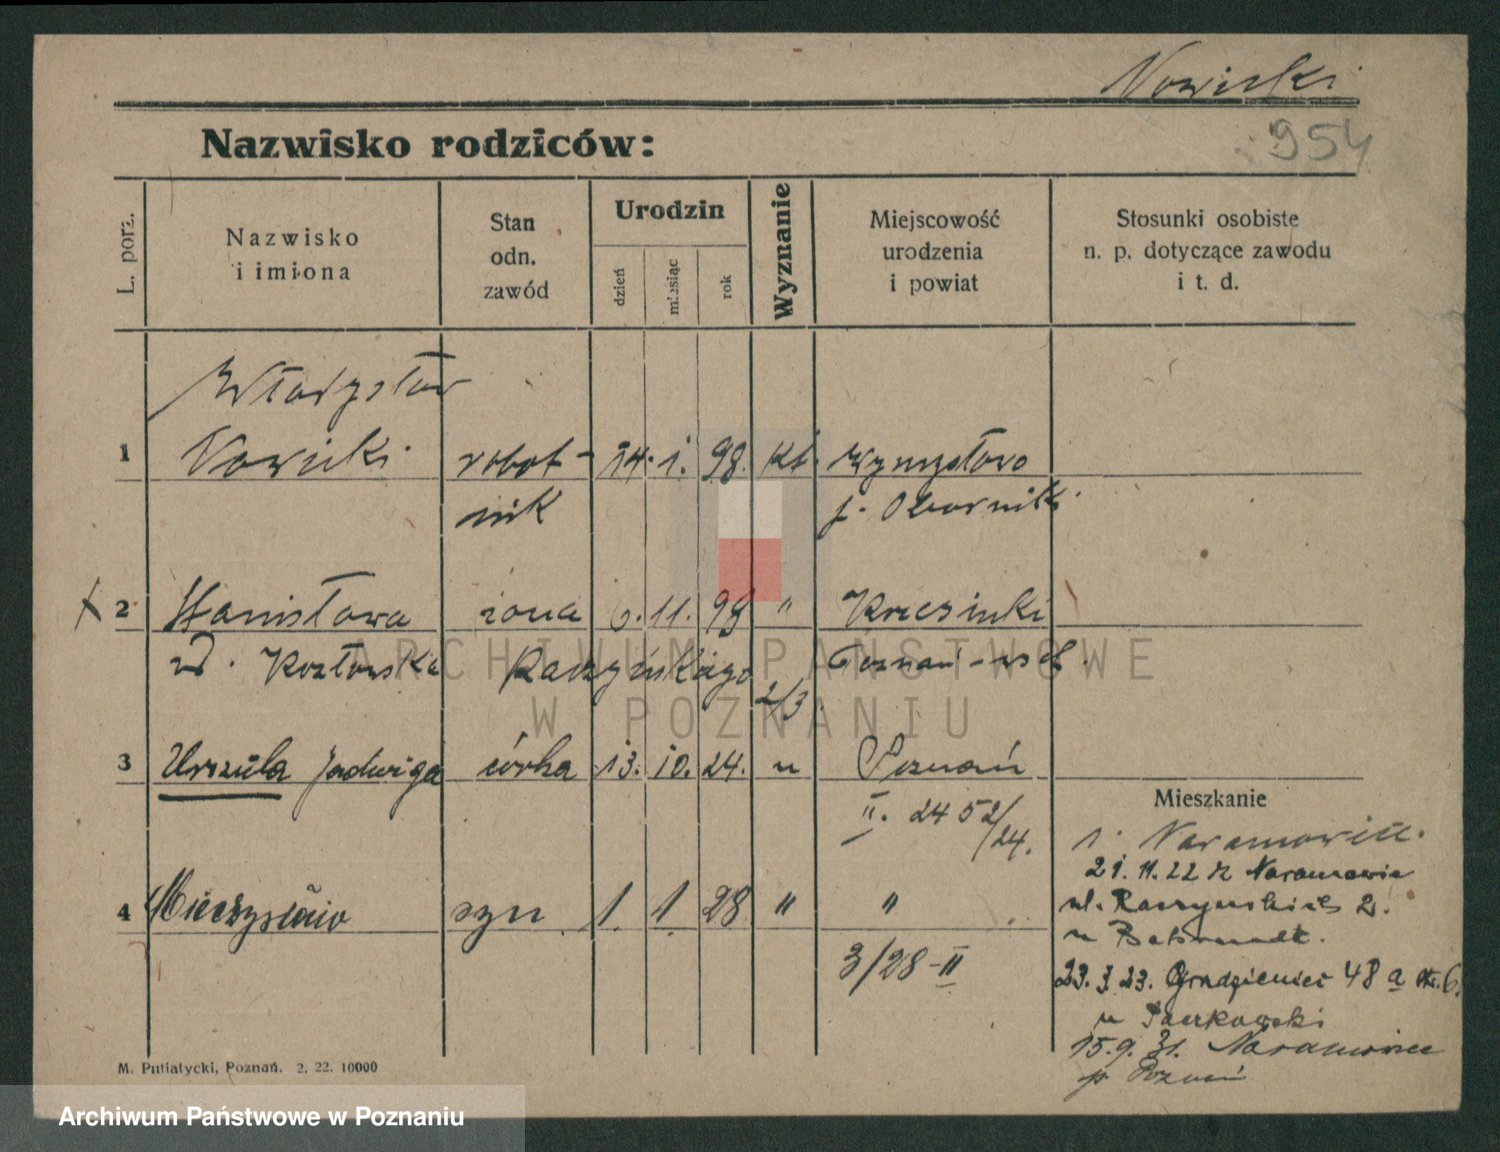 Nowicki
954
Nazwisko rodziców:
L. porz.
Nazwisko
i imiona
Stan
odn.
zawód
Urodzin
dzień
miesiąc
rok
Wyznanie
Miejscowość
urodzenia
i powiat
Stosunki osobiste
n. p. dotyczące zawodu
i t. d.
Władysław
1 Nowicki robot- 14. 1. 98. kt. Wymysłowo
nik p. Obornik
X 2 Stanisława żona 6. 11. 98 " Krzesinki
ur. Kozłowska Raczyńskiego 2/3 Poznań-wsch.
3 Urszula Jadwiga córka 13. 10. 24. " Poznań
II. 2452/24.
4 Mieczysław syn 1. 1. 28 " "
3/28-II
Mieszkanie
1. Naramowic.
21.11.22 z Naramowic
ul. Raczyńskich 2.
u
23.3.23. Grudzieniec 48a m. 6.
u Paczkowski
15.9.31. Naramowice
p. Poznań
M. Putiatycki, Poznań. 2. 22. 10000
ARCHIWUM PAŃSTWOWE
W POZNANIU
Archiwum Państwowe w Poznaniu